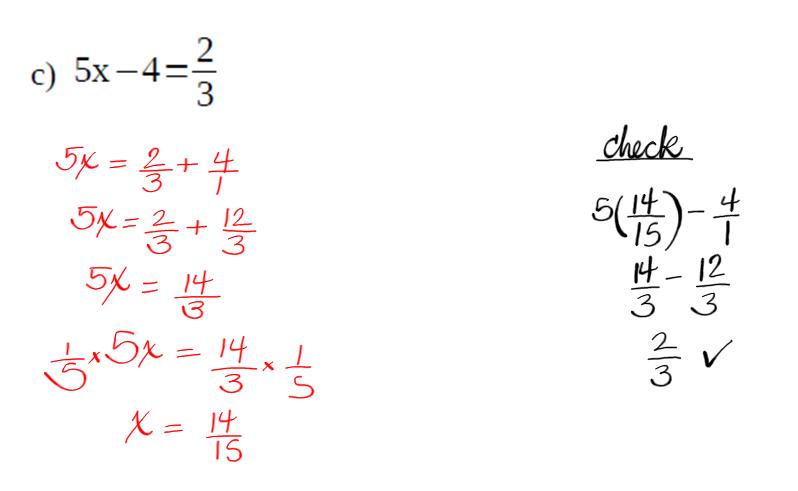 c) 5x−4=2/3
5x = 2/3 + 4/1
5x = 2/3 + 12/3
5x = 14/3
1/5 × 5x = 14/3 × 1/5
x = 14/15
check
5(14/15) − 4/1
14/3 − 12/3
2/3 ✓